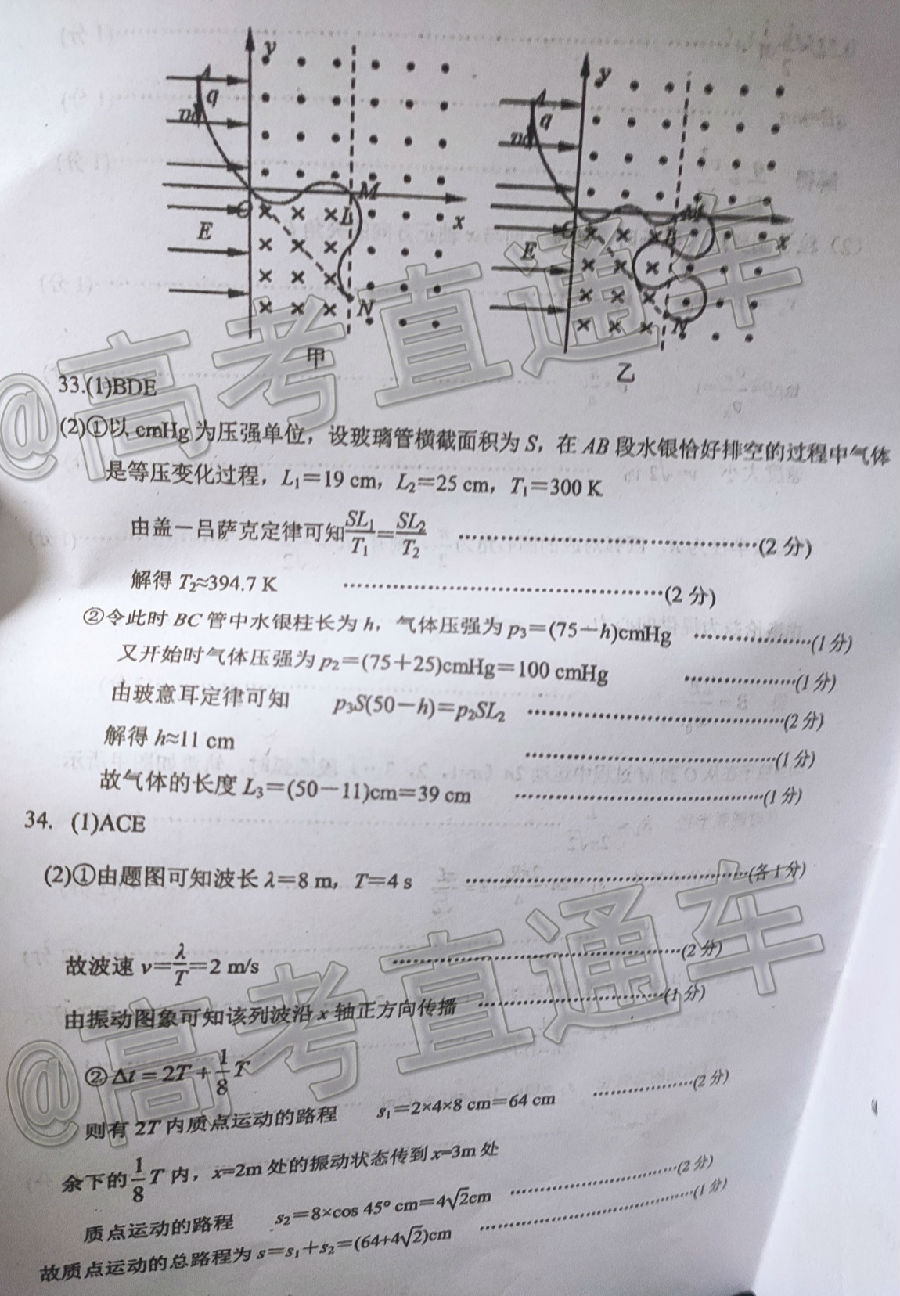 y
y
A
q
A
q
M
M
O
L
x
O
L
x
E
E
N
N
甲
乙
33.(1)BDE
(2)①以 cmHg 为压强单位，设玻璃管横截面积为 S，在 AB 段水银恰好排空的过程中气体
是等压变化过程，L₁＝19 cm，L₂＝25 cm，T₁＝300 K
由盖－吕萨克定律可知 SL₁/T₁＝SL₂/T₂ ……(2 分)
解得 T₂≈394.7 K ……(2 分)
②令此时 BC 管中水银柱长为 h，气体压强为 p₃＝(75－h)cmHg ……(1 分)
又开始时气体压强为 p₂＝(75＋25)cmHg＝100 cmHg ……(1 分)
由玻意耳定律可知 p₃S(50－h)＝p₂SL₂ ……(2 分)
解得 h≈11 cm ……(1 分)
故气体的长度 L₃＝(50－11)cm＝39 cm ……(1 分)
34. (1)ACE
(2)①由题图可知波长 λ＝8 m，T＝4 s ……(各 1 分)
故波速 v＝λ/T＝2 m/s ……(2 分)
由振动图象可知该列波沿 x 轴正方向传播 ……(1 分)
②Δt＝2T＋1/8 T
则有 2T 内质点运动的路程 s₁＝2×4×8 cm＝64 cm ……(2 分)
余下的 1/8 T 内，x=2m 处的振动状态传到 x=3m 处
质点运动的路程 s₂＝8×cos 45° cm＝4√2cm ……(2 分)
故质点运动的总路程为 s＝s₁＋s₂＝(64+4√2)cm ……(1 分)
@高考直通车
@高考直通车